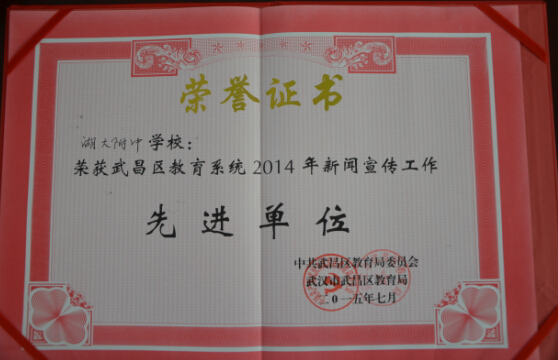 荣誉证书
湖大附中学校：
荣获武昌区教育系统2014年新闻宣传工作
先进单位
中共武昌区教育局委员会
武汉市武昌区教育局
二0一五年七月